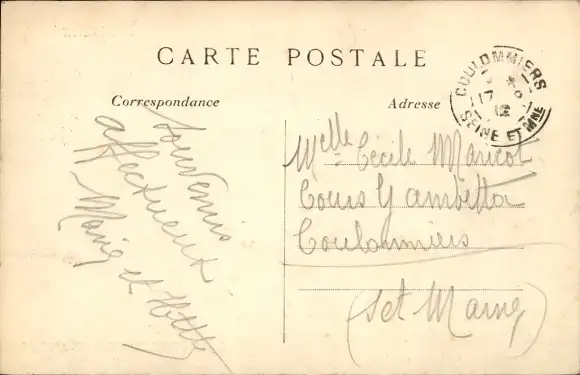 CARTE POSTALE
Correspondance
Adresse
COULOMMIERS
17
SEINE ET MNE
Souvenirs
affectueux
Marie et
Melle Cécile Maricot
Cours Gambetta
Coulommiers
(S et Marne)